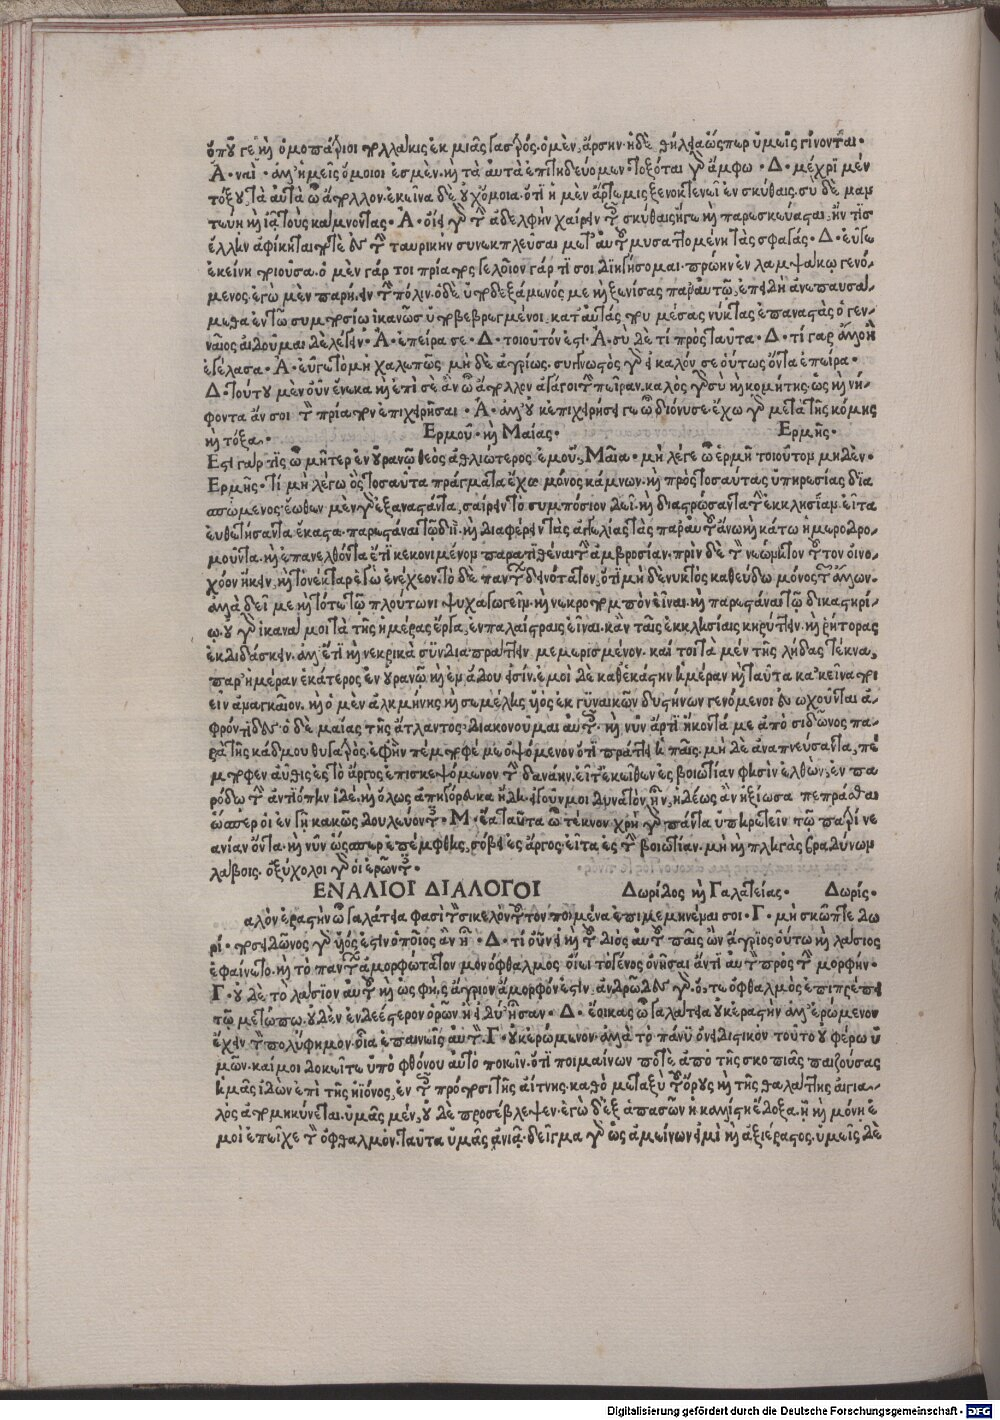 ὅπου γε καὶ ὁμοπάτριοι πολλάκις ἐκ μιᾶς γαστρός. ὁ μὲν, ἄρσην. ἡ δὲ θήλεια ὥσπερ ὑμεῖς γίνονται.
Α. ναί. ἀλλ' ἡμεῖς ὅμοιοι ἐσμὲν. καὶ τὰ αὐτὰ ἐπιτηδεύομεν. τοξόται γὰρ ἄμφω. Δ. μέχρι μὲν
τόξου, τὰ αὐτὰ ὦ ἄπολλον. ἐκεῖνα δὲ οὐχ ὅμοια. ὅτι ἡ μὲν ἄρτεμις ξενοκτενεῖ ἐν σκύθαις. σὺ δὲ μαν
τεύῃ καὶ ἰᾷ τοὺς κάμνοντας. Α. οἴει γὰρ τὴν ἀδελφὴν χαίρειν τοῖς σκύθαις, ἥγε καὶ παρεσκεύασται, ἤν τις
ἕλλην ἀφίκηται ποτὲ εἰς τὴν ταυρικὴν συνεκπλεῦσαι μετ' αὐτοῦ μυσαττομένη τὰς σφαγάς. Δ. εὖ γε
ἐκείνη ποιοῦσα. ὁ μὲν γάρ τοι πρίαπος γελοῖον γάρ τί σοι διηγήσομαι. πρώην ἐν λαμψάκῳ γενό-
μενος, ἐγὼ μὲν παρῄειν τὴν πόλιν. ὁ δὲ ὑποδεξάμενός με καὶ ξενίσας παρ' αὑτῷ, ἐπειδὴ ἀνεπαυσά-
μεθα ἐν τῷ συμποσίῳ ἱκανῶς ὑποβεβρεγμένοι, κατ' αὐτάς που μέσας νύκτας ἐπαναστὰς ὁ γεν-
ναῖος αἰδοῦμαι δὲ λέγειν. Α. ἐπείρα σε. Δ. τοιοῦτόν ἐστι. Α. σὺ δὲ τί πρὸς ταῦτα. Δ. τί γὰρ ἄλλο ἢ
ἐγέλασα. Α. εὖγε τὸ μὴ χαλεπῶς. μὴ δὲ ἀγρίως. συγγνωστὸς γὰρ εἰ καλόν σε οὕτως ὄντα ἐπείρα.
Δ. τούτου μὲν οὖν ἕνεκα καὶ ἐπὶ σὲ ἂν ὦ ἄπολλον ἀγάγοι τὴν πεῖραν. καλὸς γὰρ σὺ καὶ κομήτης. ὡς καὶ νή-
φοντα ἄν σοι τὸν πρίαπον ἐπιχειρῆσαι. Α. ἀλλ' οὐκ ἐπιχειρήσει γε ὦ διόνυσε. ἔχω γὰρ μετὰ τῆς κόμης
καὶ τόξα. Ερμοῦ. καὶ Μαίας. Ερμῆς.
Εστι γάρ τις ὦ μῆτερ ἐν οὐρανῷ θεὸς ἀθλιώτερος ἐμοῦ, Μαῖα. μὴ λέγε ὦ ἑρμῆ τοιοῦτον μηδὲν.
Ερμῆς. τί μὴ λέγω ὃς τοσαῦτα πράγματα ἔχω μόνος κάμνων. καὶ πρὸς τοσαύτας ὑπηρεσίας δια
σπώμενος, ἕωθεν μὲν γὰρ ἐξαναστάντα, σαίρειν τὸ συμπόσιον δεῖ. καὶ διαστρώσαντα τὴν ἐκκλησίαν. εἶτα
εὐθετήσαντα ἕκαστα. παρεστάναι τῷ διί. καὶ διαφέρειν τὰς ἀγγελίας τὰς παρ' αὐτοῦ ἄνω καὶ κάτω ἡμεροδρο-
μοῦντα. καὶ ἐπανελθόντα ἔτι κεκονιμένον παρατιθέναι τὴν ἀμβροσίαν. πρὶν δὲ τὸν νεώνητον τοῦτον οἰνο-
χόον ἥκειν, καὶ τὸ νέκταρ ἐγὼ ἐνέχεον. τὸ δὲ πάντων δεινότατον, ὅτι μὴ δὲ νυκτὸς καθεύδω μόνος τῶν ἄλλων.
ἀλλὰ δεῖ με καὶ τότε τῷ πλούτωνι ψυχαγωγεῖν. καὶ νεκροπομπὸν εἶναι. καὶ παρεστάναι τῷ δικαστηρί-
ῳ. οὐ γὰρ ἱκανά μοι τὰ τῆς ἡμέρας ἔργα, ἐν παλαίστραις εἶναι. κἂν ταῖς ἐκκλησίαις κηρύττειν. καὶ ῥήτορας
ἐκδιδάσκειν. ἀλλ' ἔτι καὶ νεκρικὰ συνδιαπράττειν μεμερισμένον. καί τοι τὰ μὲν τῆς λήδας τέκνα,
παρ' ἡμέραν ἑκάτερος ἐν οὐρανῷ καὶ ἐν ᾅδου εἰσίν. ἐμοὶ δὲ καθ' ἑκάστην ἡμέραν καὶ ταῦτα κἀκεῖνα ποι
εῖν ἀναγκαῖον. καὶ ὁ μὲν ἀλκμήνης καὶ σεμέλης υἱὸς ἐκ γυναικῶν δυστήνων γενόμενοι εὐωχοῦνται ἀ-
φρόντιδες. ὁ δὲ μαίας τῆς ἄτλαντος διακονοῦμαι αὐτοῖς. καὶ νῦν ἄρτι ἥκοντά με ἀπὸ σιδῶνος πα-
ρὰ τῆς κάδμου θυγατρός. ἐφ' ἣν πέπομφέ με ὀψόμενον ὅτι πράττει ἡ παῖς. μὴ δὲ ἀναπνεύσαντα, πέ
πομφεν αὖθις ἐς τὸ ἄργος ἐπισκεψόμενον τὴν δανάην. εἶτ' ἐκεῖθεν ἐς βοιωτίαν φησὶν ἐλθὼν, ἐν πα
ρόδῳ τὴν ἀντιόπην ἰδέ. καὶ ὅλως ἀπηγόρευκα ἤδη. εἰ γοῦν μοι δυνατὸν ἦν, ἡδέως ἂν ἠξίωσα πεπρᾶσθαι
ὥσπερ οἱ ἐν γῇ κακῶς δουλεύοντες. Μ. ἔα ταῦτα ὦ τέκνον. χρὴ γὰρ πάντα ὑπηρετεῖν τῷ πατρὶ νε
ανίαν ὄντα. καὶ νῦν ὥσπερ ἐπέμφθης, σόβει ἐς ἄργος. εἶτα ἐς τὴν βοιωτίαν. μὴ καὶ πληγὰς βραδύνων
λάβοις. ὀξύχολοι γὰρ οἱ ἐρῶντες.
ΕΝΑΛΙΟΙ ΔΙΑΛΟΓΟΙ Δωρίδος καὶ Γαλατείας. Δωρίς.
αλὸν ἐραστὴν ὦ γαλάτεια φασὶ τὸν σικελὸν τοῦτον ποιμένα ἐπιμεμηνέναι σοι. Γ. μὴ σκῶπτε δω
ρί. ποσειδῶνος γὰρ υἱός ἐστιν ὁποῖος ἂν ᾖ. Δ. τί οὖν εἰ καὶ τοῦ διὸς αὐτοῦ παῖς ὢν ἄγριος οὕτω καὶ λάσιος
ἐφαίνετο. καὶ τὸ πάντων ἀμορφώτατον μονόφθαλμος. οἴει τὸ γένος ὀνῆσαι ἄν τι αὐτοῦ πρὸς τὴν μορφήν.
Γ. οὐδὲ τὸ λάσιον αὐτοῦ καὶ ὡς φής, ἄγριον, ἄμορφόν ἐστιν. ἀνδρῶδες γάρ. ὅ, τε ὀφθαλμὸς ἐπιπρέπει
τῷ μετώπῳ. οὐδὲν ἐνδεέστερον ὁρῶν. ἢ εἰ δύ' ἦσαν. Δ. ἔοικας ὦ γαλάτεια οὐκ ἐραστὴν ἀλλ' ἐρώμενον
ἔχειν τὸν πολύφημον. οἷα ἐπαινεῖς αὐτόν. Γ. οὐκ ἐρώμενον. ἀλλὰ τὸ πάνυ ὀνειδιστικὸν τοῦτο οὐ φέρω ὑ
μῶν. καί μοι δοκεῖτε ὑπὸ φθόνου αὐτὸ ποιεῖν. ὅτι ποιμαίνων ποτὲ ἀπὸ τῆς σκοπιᾶς παιζούσας
ἡμᾶς ἰδὼν ἐπὶ τῆς ἠϊόνος, ἐν τοῖς πρόποσι τῆς αἴτνης. καθὸ μεταξὺ τοῦ ὄρους καὶ τῆς θαλάττης αἰγια-
λὸς ἀπομηκύνεται. ὑμᾶς μὲν, οὐδὲ προσέβλεψεν. ἐγὼ δ' ἐξ ἁπασῶν ἡ καλλίστη ἔδοξα. ᾗ καὶ μόνῃ ἐ
μοὶ ἐπεῖχε τὸν ὀφθαλμόν. ταῦτα ὑμᾶς ἀνιᾷ. δεῖγμα γὰρ ὡς ἀμείνων εἰμὶ καὶ ἀξιέραστος. ὑμεῖς δὲ
Digitalisierung gefördert durch die Deutsche Forschungsgemeinschaft - DFG